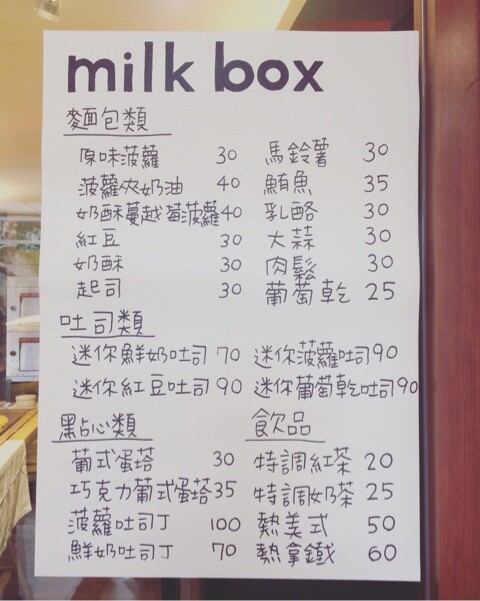 milk box
麵包類
原味菠蘿 30
菠蘿夾奶油 40
奶酥蔓越莓菠蘿40
紅豆 30
奶酥 30
起司 30
馬鈴薯 30
鮪魚 35
乳酪 30
大蒜 30
肉鬆 30
葡萄乾 25
吐司類
迷你鮮奶吐司 70
迷你紅豆吐司 90
迷你菠蘿吐司90
迷你葡萄乾吐司90
點心類
葡式蛋塔 30
巧克力葡式蛋塔35
菠蘿吐司丁 100
鮮奶吐司丁 70
飲品
特調紅茶 20
特調奶茶 25
熱美式 50
熱拿鐵 60